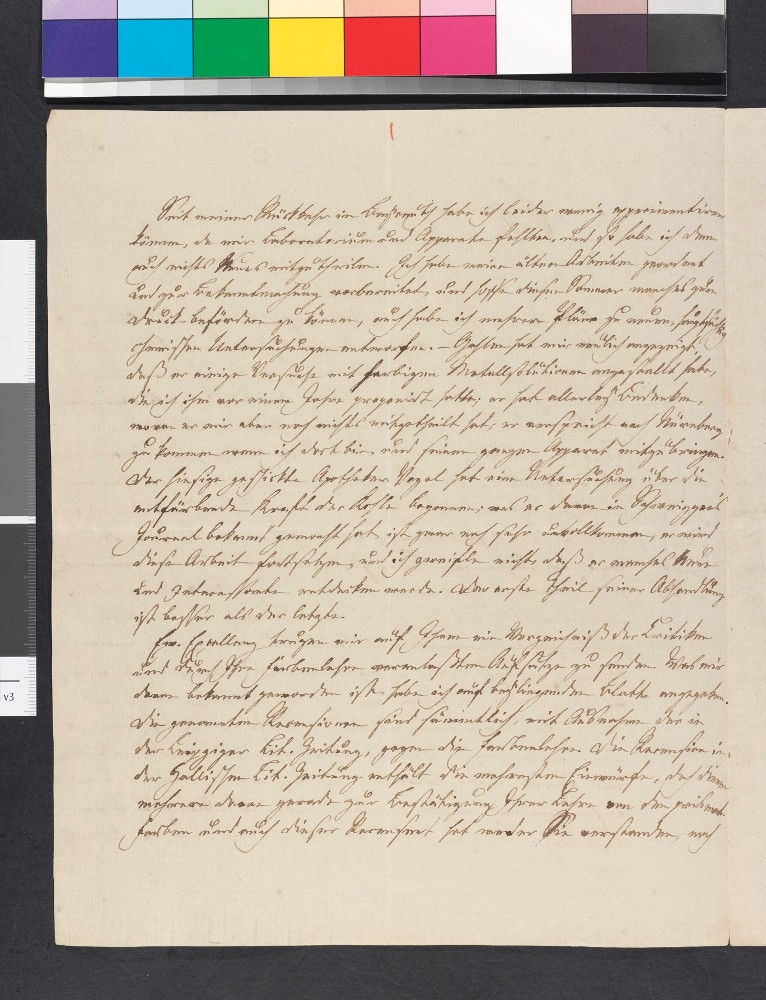 Seit meiner Rückkehr in Bayreuth habe ich leider wenig experimentiren
können, da mir Laboratorium und Apparate fehlten, und so habe ich denn
auch nichts Neues mitzutheilen. Ich habe meine ältern Arbeiten geordnet
und zur Bekanntmachung vorbereitet, und hoffe diesen Sommer manches zum
Druck befördern zu können, auch habe ich mehrere Pläne zu neuen, hauptsächlich
chemischen Untersuchungen entworfen. – Gehlen hat mir neulich angezeigt,
daß er einige Versuche mit farbigen Metallsolutionen angestellt habe,
die ich ihm vor einem Jahre proponirt hatte; er hat allerley Bedenken,
wovon er mir aber noch nichts mitgetheilt hat; er verspricht nach Nürnberg
zu kommen wenn ich dort bin, und seinen ganzen Apparat mitzubringen.
Der hiesige geschickte Apotheker Vogel hat eine Untersuchung über die
entfärbende Kraft der Kohle begonnen; was er davon in Schweiggers
Journal bekannt gemacht hat, ist zwar noch sehr unvollkommen, er wird
diese Arbeit fortsetzen, und ich zweifle nicht, daß er manches Neue
und Interessante entdecken werde. Der erste Theil seiner Abhandlung
ist besser als der letzte.
Ew. Excellenz trugen mir auf Ihnen ein Verzeichniß der Kritiken
und durch Ihre Farbenlehre veranlaßten Aufsätze zu senden. Was mir
davon bekannt geworden ist habe ich auf beyliegendem Blatte angegeben.
Die genannten Recensionen sind sämmtlich, mit Ausnahme der in
der Leipziger Lit. Zeitung, gegen die Farbenlehre. Die Recension in
der Hallischen Lit. Zeitung enthält die mehresten Einwürfe, doch dienen
mehrere davon gerade zur Bestätigung Ihrer Lehre von den prismat.
Farben und auch dieser Recensent hat weder Sie verstanden, noch